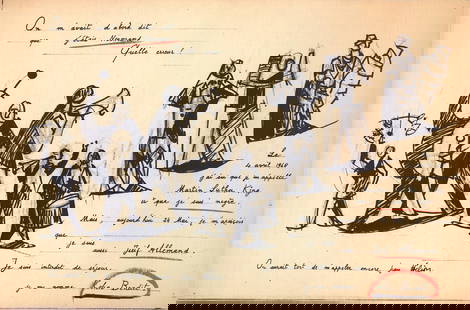 On m'avait d'abord dit
que j'étais .. Normand
Quelle erreur !
Le
4 avril 1968
j'ai su que je m'appelais
Martin Luther King
et que je suis nègre
Mais aujourd'hui 24 Mai, je m'aperçois
que je suis
aussi Juif Allemand.
Je suis interdit de séjour.
On aurait tort de m'appeler encore, par
je me nomme